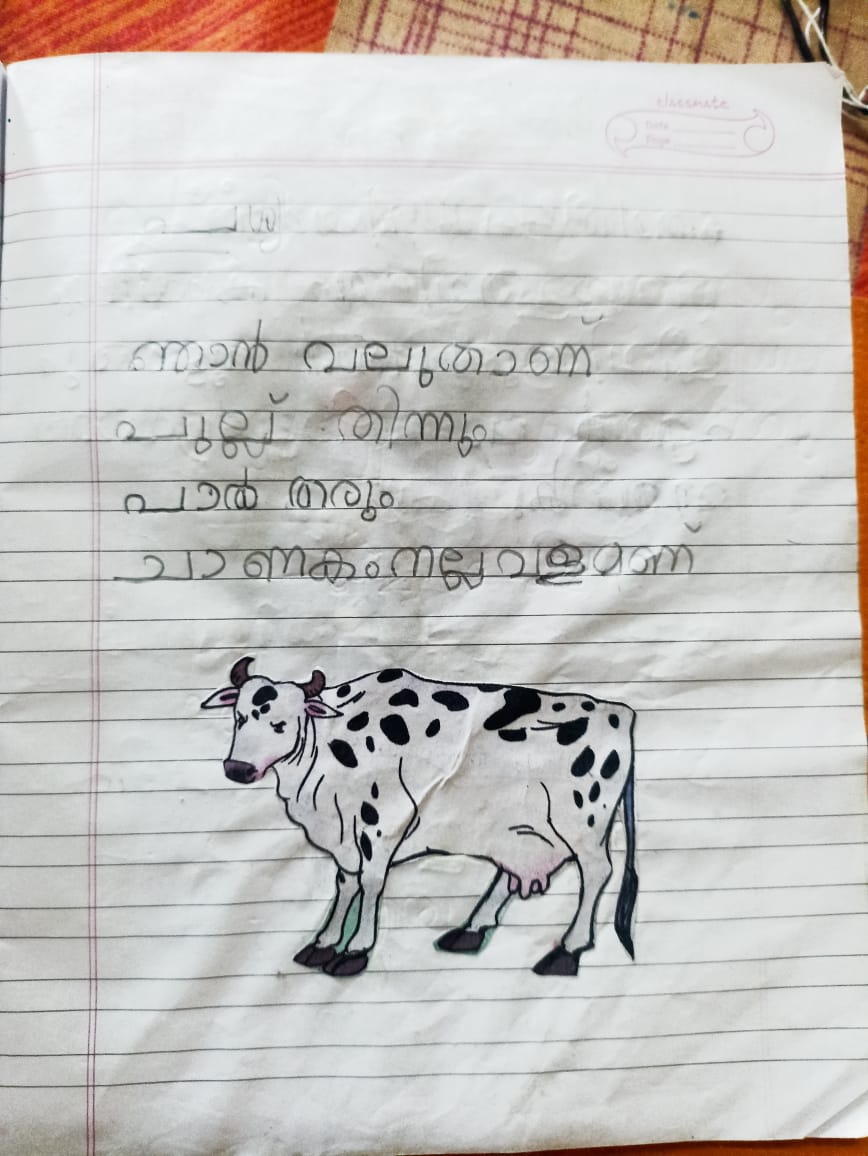 classmate
Date
Page
പശു
ഞാൻ വലുതാണ്
പുല്ല് തിന്നും
പാൽ തരും
ചാണകം നല്ല വളമാണ്